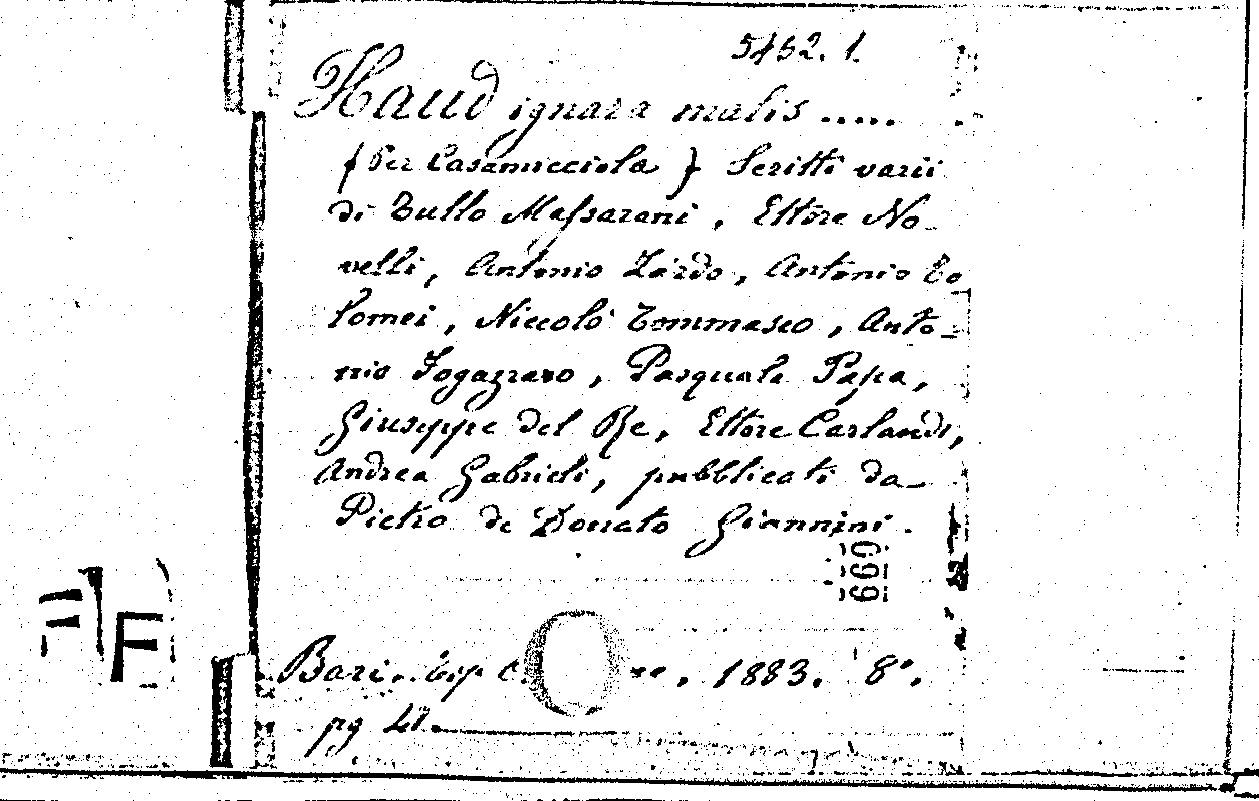 5452. 1.
Haud ignara malis .....
(Per Casamicciola) Scritti varii
di Tullo Massarani, Ettore No-
velli, Antonio Zardo, Antonio To
lomei, Niccolò Tommaseo, Anto-
nio Fogazzaro, Pasquale Papa,
Giuseppe del Re, Ettore Carlandi,
Andrea Gabrieli, pubblicati da
Pietro de Donato Giannini.
669
Bari. Tip 1883. 8°.
pg
F F